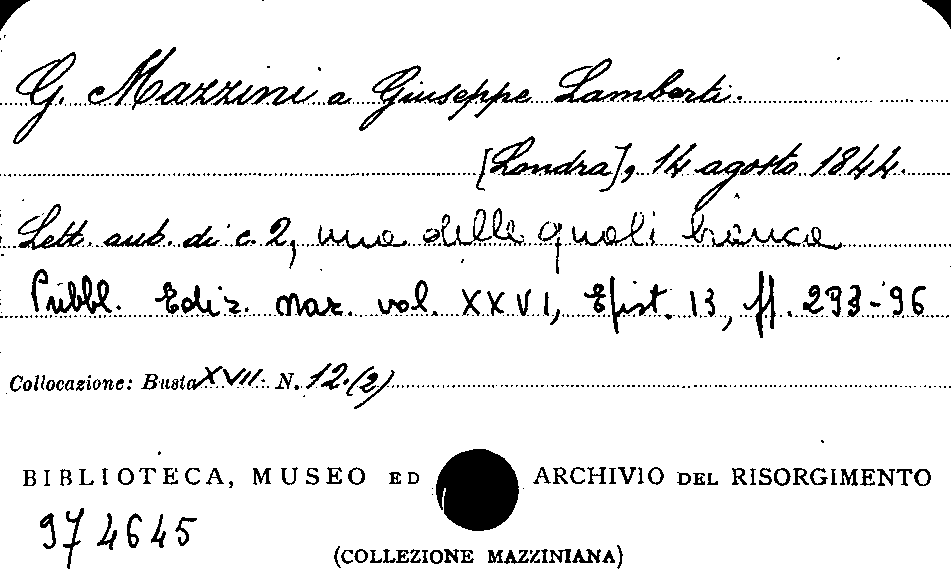 G. Mazzini a Giuseppe Lamberti.
[Londra], 14 agosto 1844.
Lett. aut. di c. 2, una delle quali bianca
Pubbl. Ediz. naz. vol. XXVI, Epist. 13, ff. 293-96
Collocazione: Busta XVII. N. 12.(2)
BIBLIOTECA, MUSEO ED ARCHIVIO DEL RISORGIMENTO
974645
(COLLEZIONE MAZZINIANA)